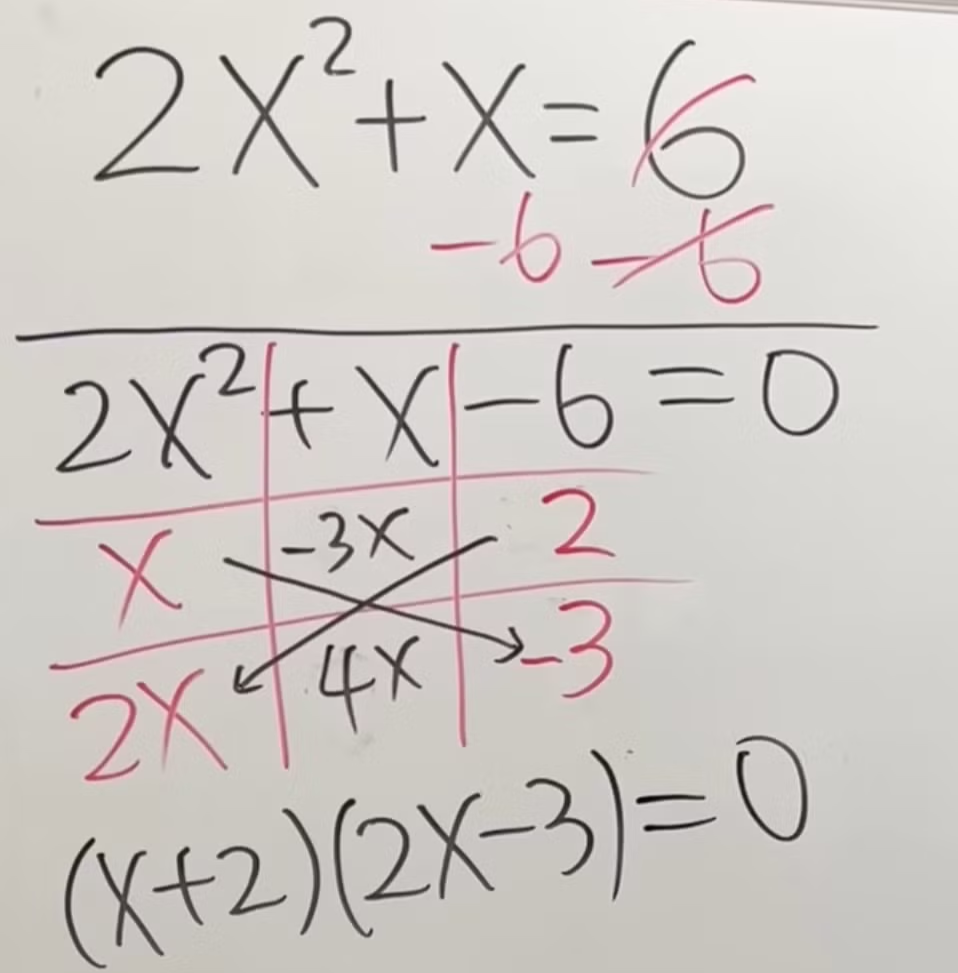 2X²+X=6
-6 -6
2X²+X-6=0
X -3X 2
2X 4X -3
(X+2)(2X-3)=0